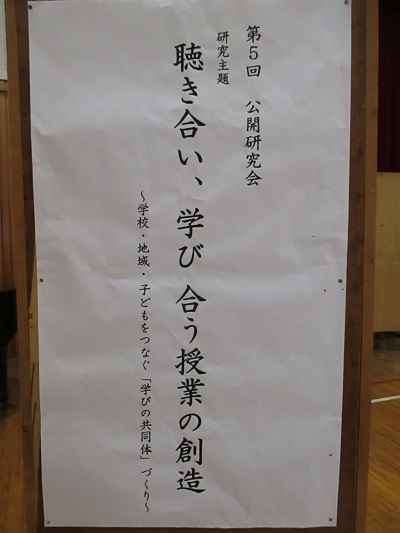 第5回 公開研究会
研究主題
聴き合い、学び合う授業の創造
～学校・地域・子どもをつなぐ「学びの共同体」づくり～